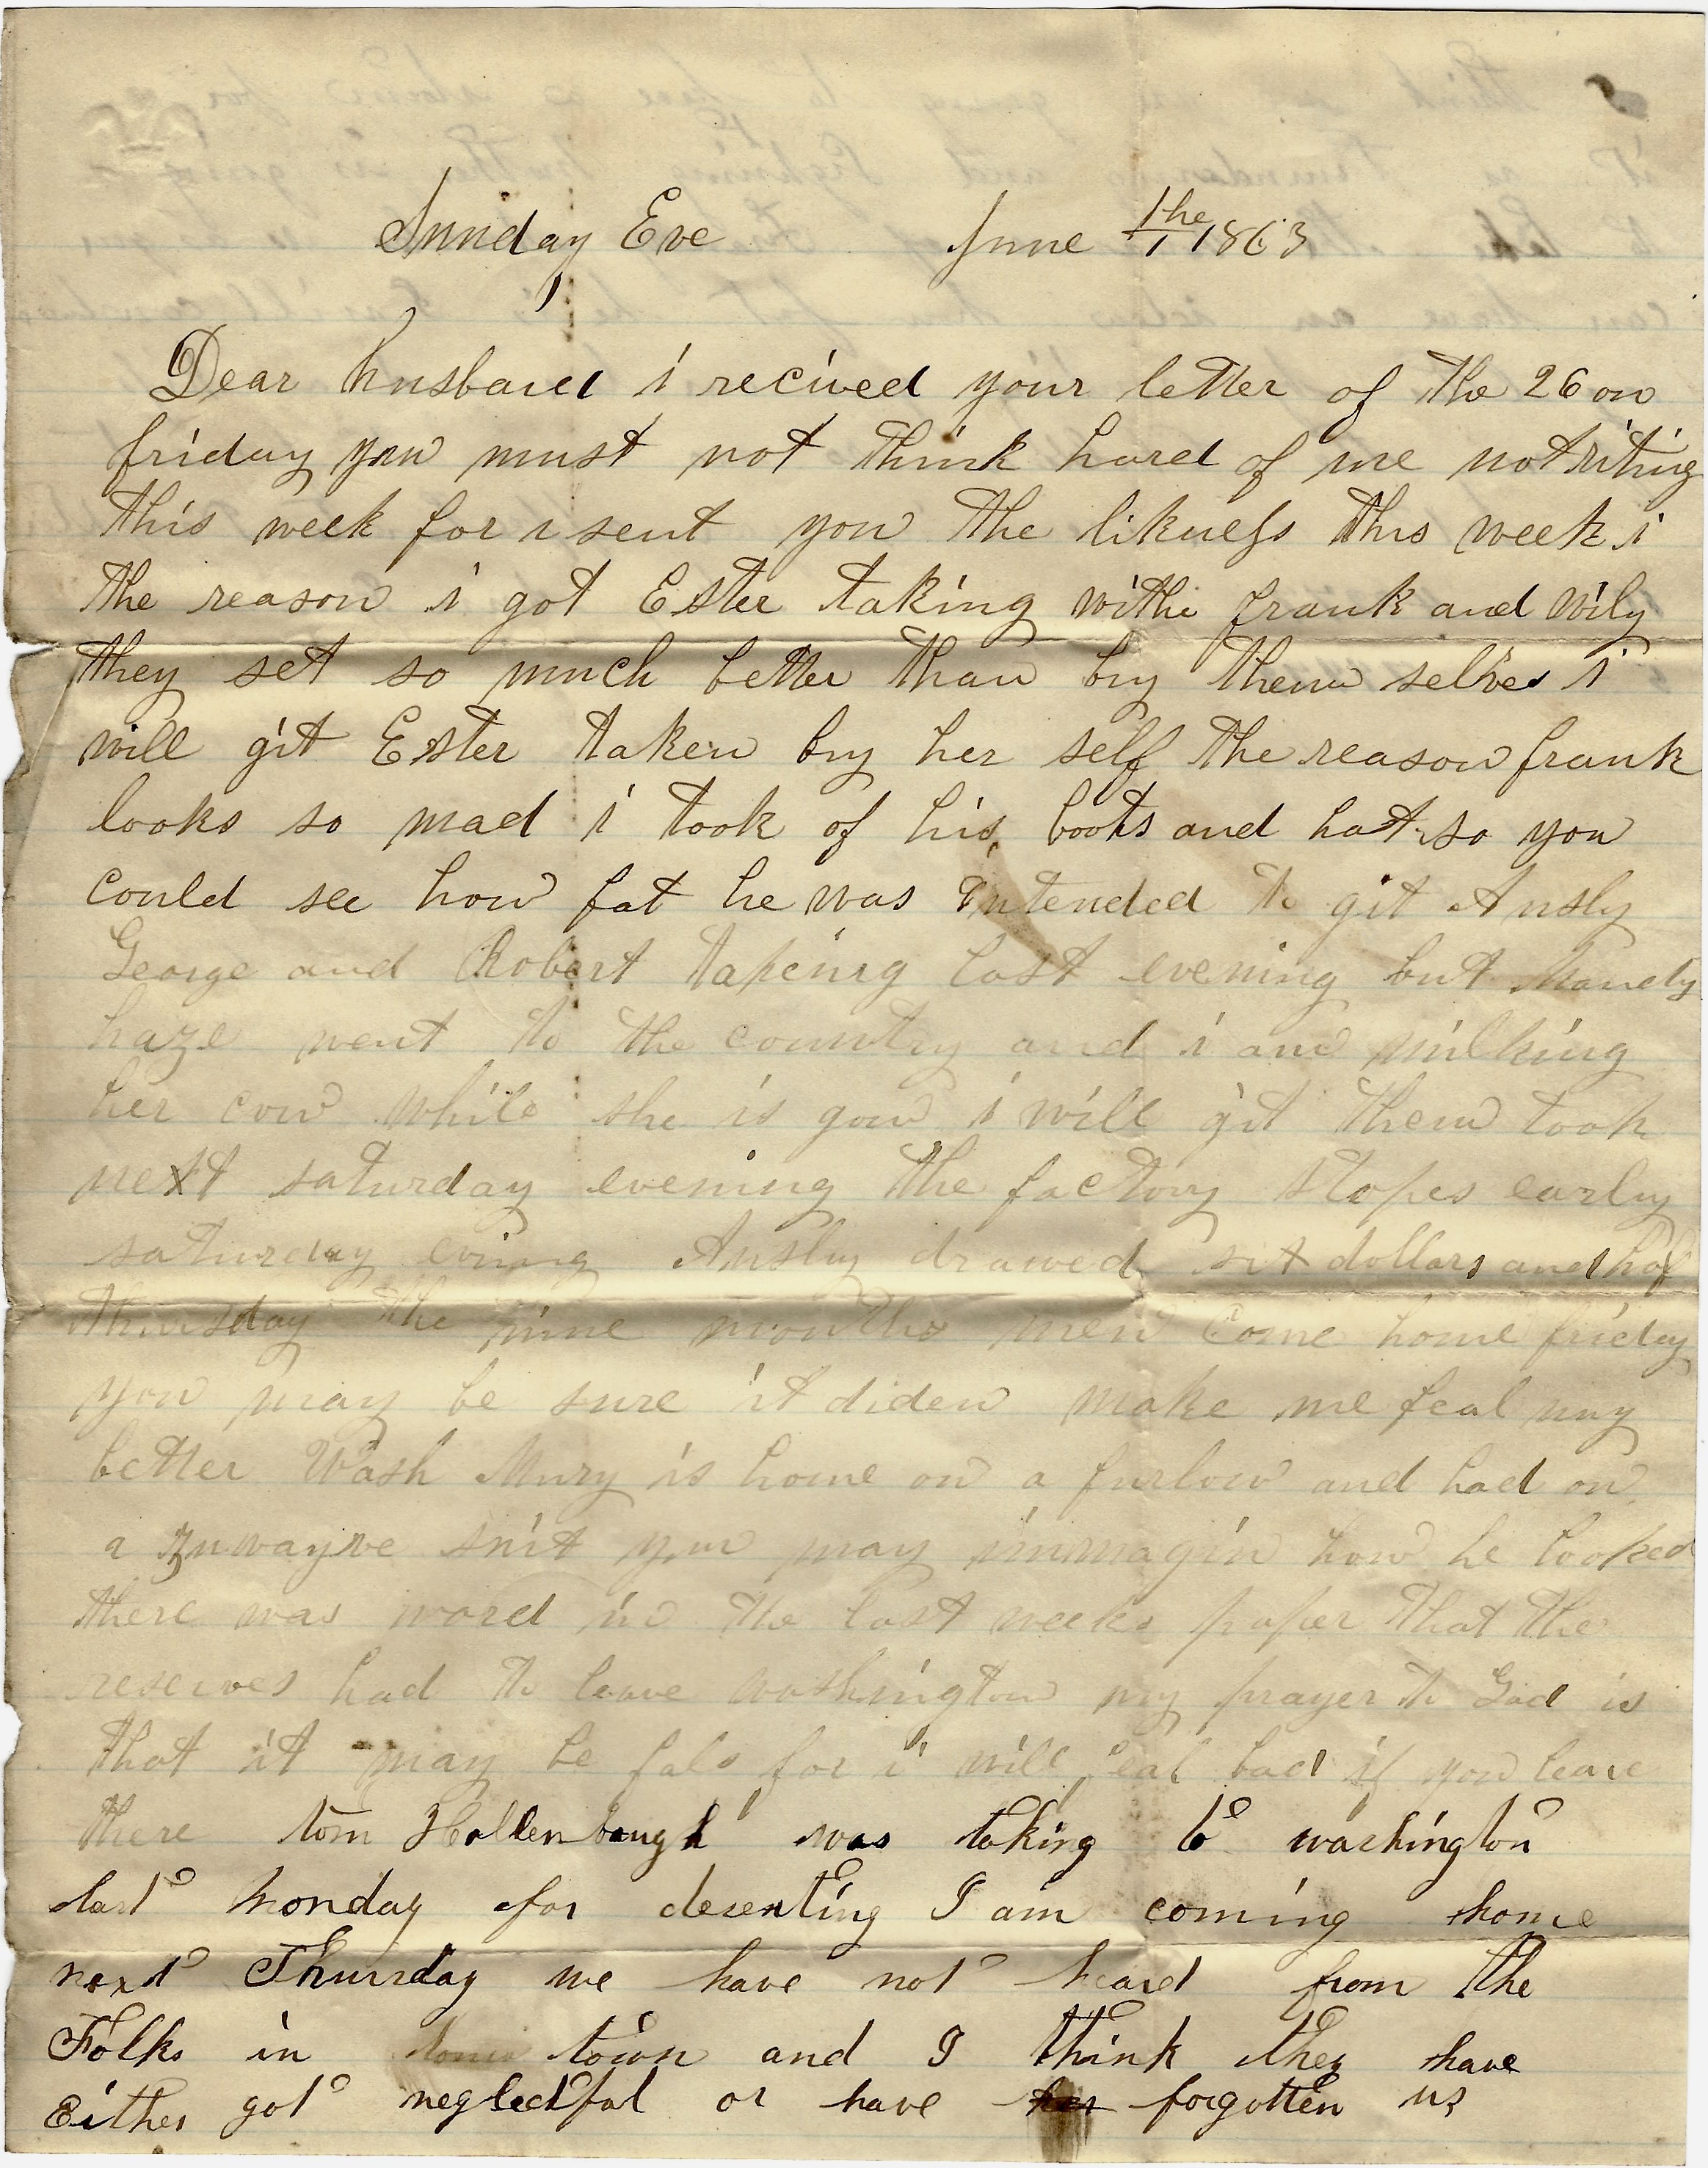 Sunday Eve June the 1 1863
Dear husband i recived your letter of the 26 on
friday you must not think hard of me not riting
this week for i sent you the likness this week i
the reason i got Ester taking withe frank and wily
they set so much better than by them selves i
will git Ester taken by her self the reason frank
looks so mad i took of his boots and hat so you
could see how fat he was intended to git Ansly
George and Robert takeing last evening but Mandy
haze went to the country and i am milking
her cow while she is gon i will git them took
next saturday evening the factory stopes early
saturday evining Ansly drawed six dollars and half
thursday the nine months men come home friday
you may be sure it diden make me feal my
better Wash Mury is home on a furlow and had on
a zuwayve suit you may immagin how he looked
there was word in the last weeks paper that the
reserves had to leave washington my prayer to God is
that it may be fals for i will feal bad if you leave
there tom Hollenbaugh was taking to washington
last monday for deserting I am coming home
next Thursday we have not heard from the
Folks in town and I think they have
Either got neglectful or have forgotten us